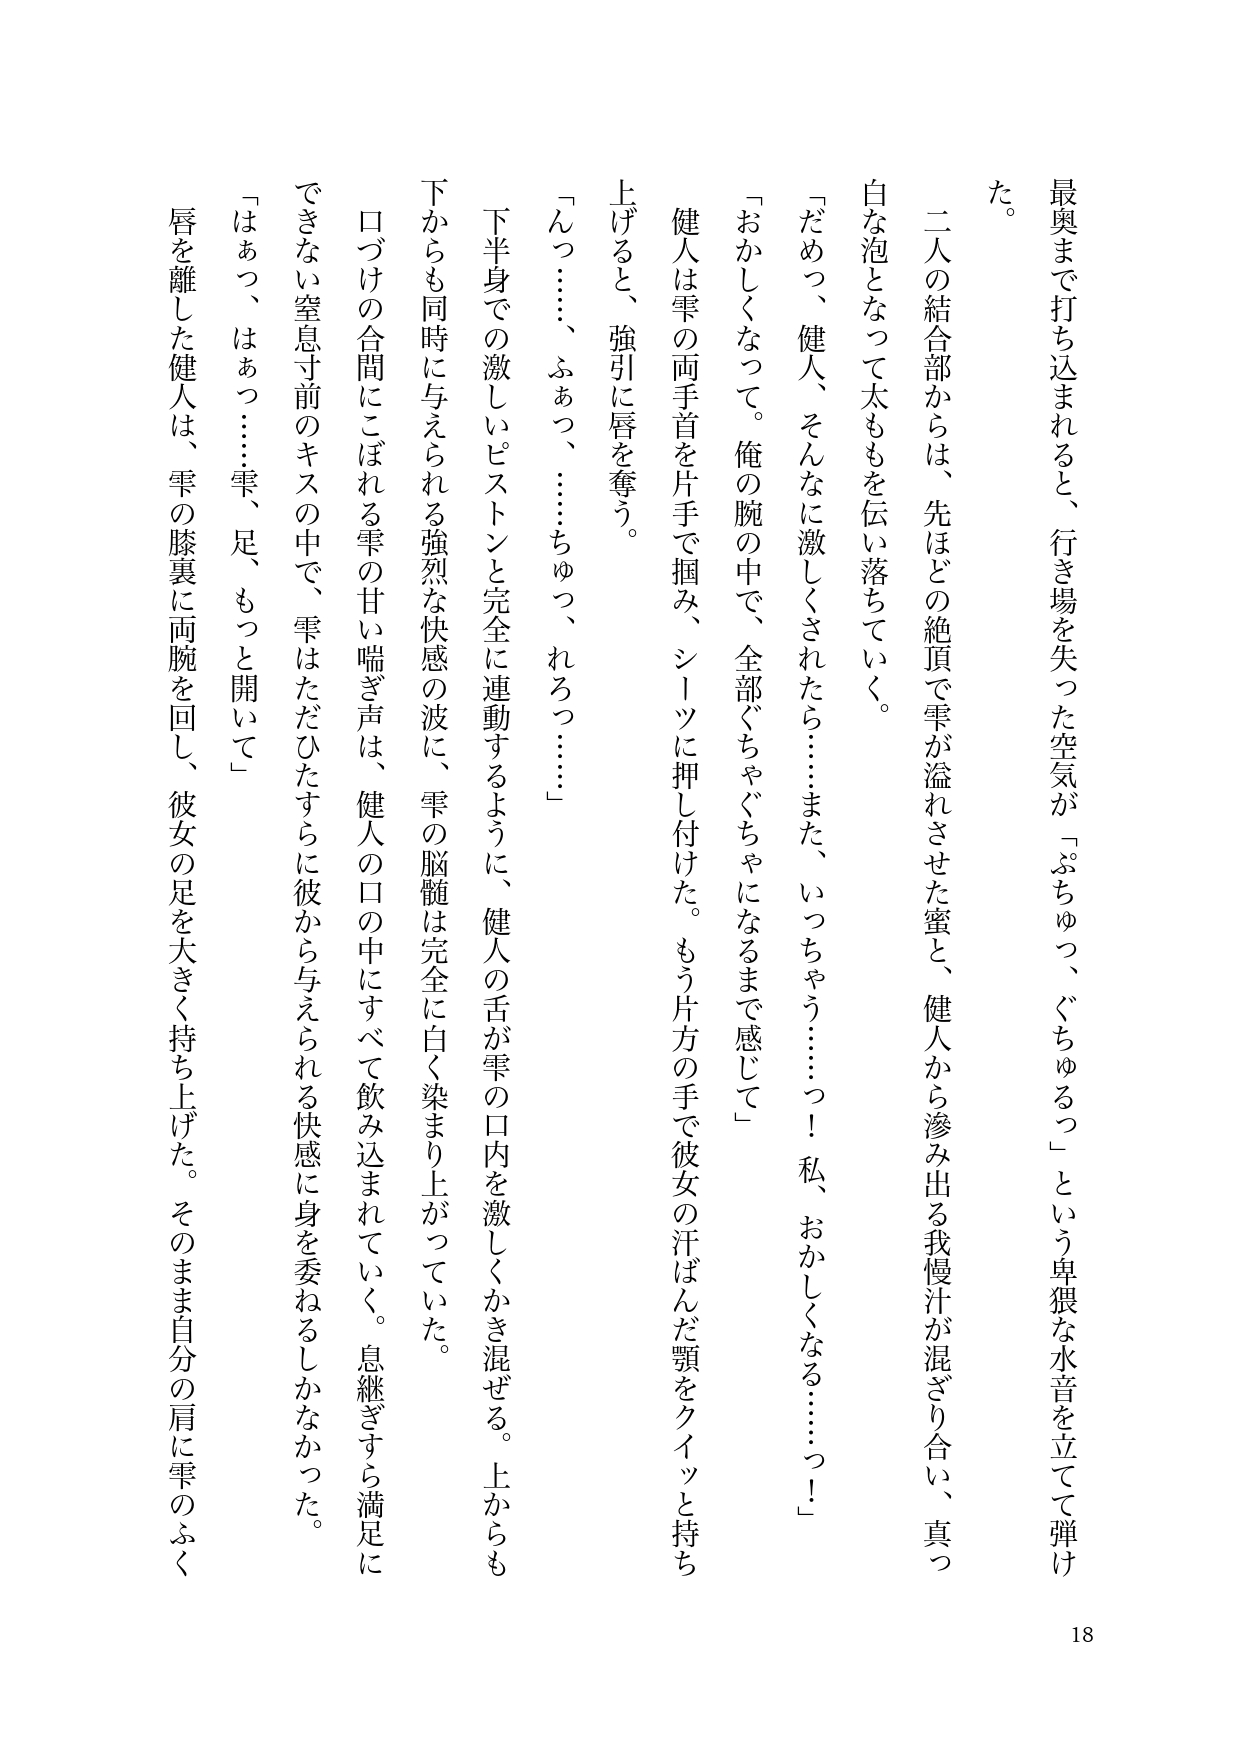 最奥まで打ち込まれると、行き場を失った空気が「ぷちゅっ、ぐちゅるっ」という卑猥な水音を立てて弾け
た。
　二人の結合部からは、先ほどの絶頂で雫が溢れさせた蜜と、健人から滲み出る我慢汁が混ざり合い、真っ
白な泡となって太ももを伝い落ちていく。
「だめっ、健人、そんなに激しくされたら……また、いっちゃう……っ！ 私、おかしくなる……っ！」
「おかしくなって。俺の腕の中で、全部ぐちゃぐちゃになるまで感じて」
　健人は雫の両手首を片手で掴み、シーツに押し付けた。もう片方の手で彼女の汗ばんだ顎をクイッと持ち
上げると、強引に唇を奪う。
「んっ……、ふぁっ、……ちゅっ、れろっ……」
　下半身での激しいピストンと完全に連動するように、健人の舌が雫の口内を激しくかき混ぜる。上からも
下からも同時に与えられる強烈な快感の波に、雫の脳髄は完全に白く染まり上がっていた。
　口づけの合間にこぼれる雫の甘い喘ぎ声は、健人の口の中にすべて飲み込まれていく。息継ぎすら満足に
できない窒息寸前のキスの中で、雫はただひたすらに彼から与えられる快感に身を委ねるしかなかった。
「はぁっ、はぁっ……雫、足、もっと開いて」
　唇を離した健人は、雫の膝裏に両腕を回し、彼女の足を大きく持ち上げた。そのまま自分の肩に雫のふく
18